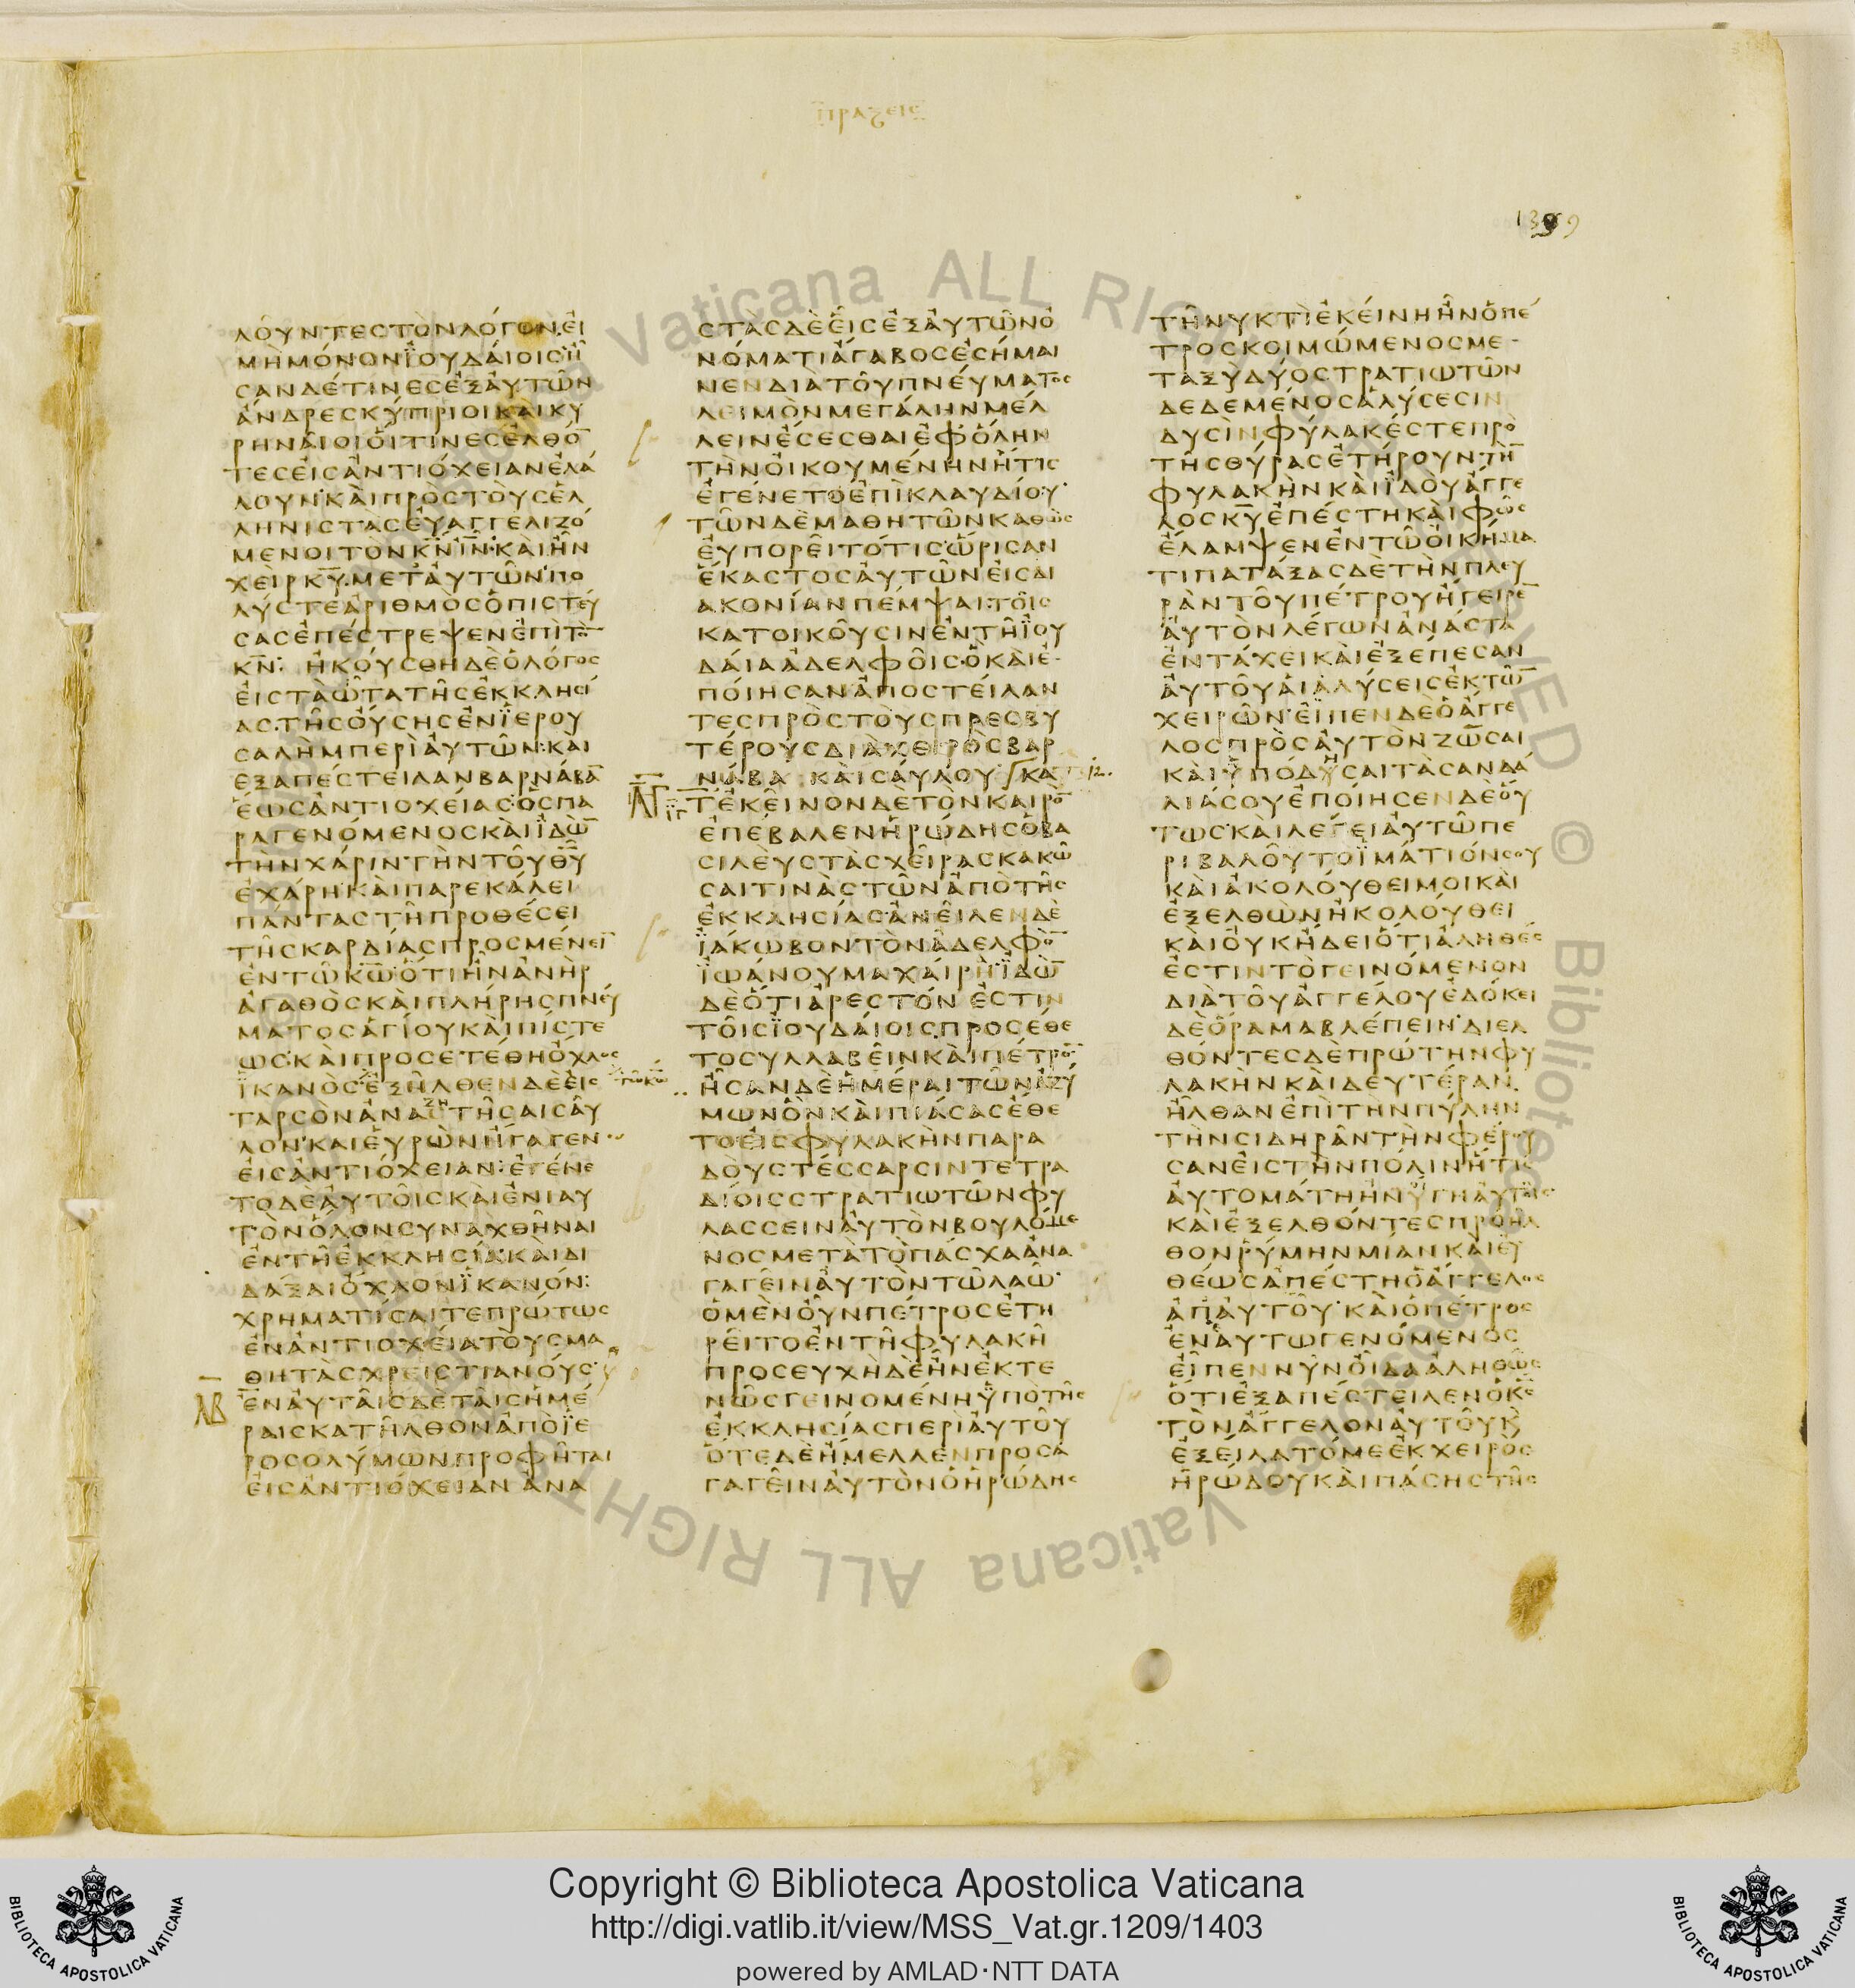 πράξεις
1399
λοῦντες τὸν λόγον. εἰ
μὴ μόνον Ἰουδαίοις ἦ
σαν δέ τινες ἐξ αὐτῶν
ἄνδρες κύπριοι καὶ κυ
ρηναῖοι οἵτινες ἐλθό̅
τες εἰς ἀντιόχειαν ἐλά
λουν καὶ πρὸς τοὺς ἑλ
ληνιστὰς εὐαγγελιζό
μενοι τὸν κ̅ν̅ ι̅ν̅· καὶ ἦν
χεὶρ κ̅υ̅ μετ' αὐτῶν· πο
λύς τε ἀριθμὸς ὁ πιστεύ
σας ἐπέστρεψεν ἐπὶ τὸ̅
κ̅ν̅: ἠκούσθη δὲ ὁ λόγος
εἰς τὰ ὦτα τῆς ἐκκλησί
ας τῆς οὔσης ἐν ἱερου
σαλὴμ περὶ αὐτῶν· καὶ
ἐξαπέστειλαν βαρνάβα̅
ἕως ἀντιοχείας· ὃς πα
ραγενόμενος καὶ ἰδὼ̅
τὴν χάριν τὴν τοῦ θ̅υ̅
ἐχάρη· καὶ παρεκάλει
πάντας τῇ προθέσει
τῆς καρδίας προσμένει̅
ἐν τῷ κ̅ω̅ ὅτι ἦν ἀνὴρ
ἀγαθὸς καὶ πλήρης πνεύ
ματος ἁγίου καὶ πίστε
ως· καὶ προσετέθη ὄχλος
ἱκανὸς ἐξῆλθεν δὲ εἰς
τῷ κ̅ω̅
ταρσὸν ἀναστῆσαι σαῦ
ζη
λον· καὶ εὑρὼν ἤγαγεν
εἰς ἀντιόχειαν: ἐγένε
το δὲ αὐτοῖς καὶ ἐνιαυ
τὸν ὅλον συναχθῆναι
ἐν τῇ ἐκκλησίᾳ· καὶ δι
δάξαι ὄχλον ἱκανόν:
χρηματίσαι τε πρώτως
ἐν ἀντιοχείᾳ τοὺς μα
θητὰς χρειστιανούς·
ΛΒ
ἐν αὐταῖς δὲ ταῖς ἡμέ
ραις κατῆλθον ἀπὸ ἱε
ροσολύμων προφῆται
εἰς ἀντιόχειαν ἀνα
στὰς δὲ εἷς ἐξ αὐτῶν ὀ
νόματι ἄγαβος ἐσήμαι
νεν διὰ τοῦ πνεύματος
λειμὸν μεγάλην μέλ
λειν ἔσεσθαι ἐφ' ὅλην
τὴν οἰκουμένην ἥτις
ἐγένετο ἐπὶ κλαυδίου·
τῶν δὲ μαθητῶν καθὼς
εὐπορεῖτό τις ὥρισαν
ἕκαστος αὐτῶν εἰς δι
ακονίαν πέμψαι τοῖς
κατοικοῦσιν ἐν τῇ ἰου
δαίᾳ ἀδελφοῖς· ὃ καὶ ἐ
ποίησαν ἀποστείλαν
τες πρὸς τοὺς πρεσβυ
τέρους διὰ χειρὸς βαρ
νάβα καὶ σαύλου κα
12.
ΛΓ
τ' ἐκεῖνον δὲ τὸν καιρὸ̅
ἐπέβαλεν ἡρώδης ὁ βα
σιλεὺς τὰς χεῖρας κακῶ
σαί τινας τῶν ἀπὸ τῆς
ἐκκλησίας· ἀνεῖλεν δὲ
ἰάκωβον τὸν ἀδελφὸ̅
ἰωάνου μαχαίρῃ· ἰδὼ̅
δὲ ὅτι ἀρεστόν ἐστιν
τοῖς ἰουδαίοις προσέθε
το συλλαβεῖν καὶ πέτρο̅
ἦσαν δὲ ἡμέραι τῶν ἀζύ
μων ὃν καὶ πιάσας ἔθε
το εἰς φυλακὴν παρα
δοὺς τέσσαρσιν τετρα
δίοις στρατιωτῶν φυ
λάσσειν αὐτὸν βουλόμε
νος μετὰ τὸ πάσχα ἀνα
γαγεῖν αὐτὸν τῷ λαῷ·
ὁ μὲν οὖν πέτρος ἐτη
ρεῖτο ἐν τῇ φυλακῇ
προσευχὴ δὲ ἦν ἐκτε
νῶς γεινομένη ὑπὸ τῆς
ἐκκλησίας περὶ αὐτοῦ
ὅτε δὲ ἤμελλεν προσα
γαγεῖν αὐτὸν ὁ ἡρώδης
τῇ νυκτὶ ἐκείνῃ ἦν ὁ πέ
τρος κοιμώμενος με
ταξὺ δύο στρατιωτῶν
δεδεμένος ἁλύσεσιν
δυσὶν φύλακές τε πρὸ
τῆς θύρας ἐτήρουν τὴ̅
φυλακὴν καὶ ἰδοὺ ἄγγε
λος κ̅υ̅ ἐπέστη καὶ φῶς
ἔλαμψεν ἐν τῷ οἰκήμα
τι πατάξας δὲ τὴν πλευ
ρὰν τοῦ πέτρου ἤγειρε̅
αὐτὸν λέγων ἀνάστα
ἐν τάχει καὶ ἐξέπεσαν
αὐτοῦ αἱ ἁλύσεις ἐκ τῶ̅
χειρῶν· εἶπεν δὲ ὁ ἄγγε
λος πρὸς αὐτὸν ζῶσαι
καὶ ὑπόδησαι τὰ σανδά
λιά σου ἐποίησεν δὲ οὕ
τως· καὶ λέγει αὐτῷ πε
ριβαλοῦ τὸ ἱμάτιόν σου
καὶ ἀκολούθει μοι καὶ
ἐξελθὼν ἠκολούθει
καὶ οὐκ ᾔδει ὅτι ἀληθές
ἐστιν τὸ γεινόμενον
διὰ τοῦ ἀγγέλου ἐδόκει
δὲ ὅραμα βλέπειν· διελ
θόντες δὲ πρώτην φυ
λακὴν καὶ δευτέραν
ἦλθαν ἐπὶ τὴν πύλην
τὴν σιδηρᾶν τὴν φέρου
σαν εἰς τὴν πόλιν ἥτις
αὐτομάτη ἠνύγη αὐτοῖς
καὶ ἐξελθόντες προῆλ
θον ῥύμην μίαν καὶ εὐ
θέως ἀπέστη ὁ ἄγγελος
ἀπ' αὐτοῦ· καὶ ὁ πέτρος
ἐν αὑτῷ γενόμενος
εἶπεν νῦν οἶδα ἀληθῶς
ὅτι ἐξαπέστειλεν ὁ κ̅ς̅
τὸν ἄγγελον αὐτοῦ κ̀
ἐξείλατό με ἐκ χειρὸς
ἡρώδου καὶ πάσης τῆς
Copyright © Biblioteca Apostolica Vaticana
http://digi.vatlib.it/view/MSS_Vat.gr.1209/1403
powered by AMLAD·NTT DATA
BIBLIOTECA APOSTOLICA VATICANA
BIBLIOTECA APOSTOLICA VATICANA